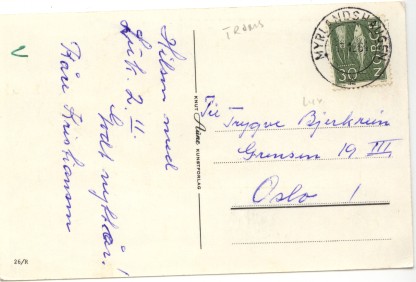 Hilsen med
Luk. 2. 11.
Godt nyttår!
Kåre Kristiansen
26/K
KNUT Aune KUNSTFORLAG
TROMS
MYRLANDSHAUGEN
NORGE
30
Til
Trygve Bjerkrein
Grensen 19 III,
Oslo 1